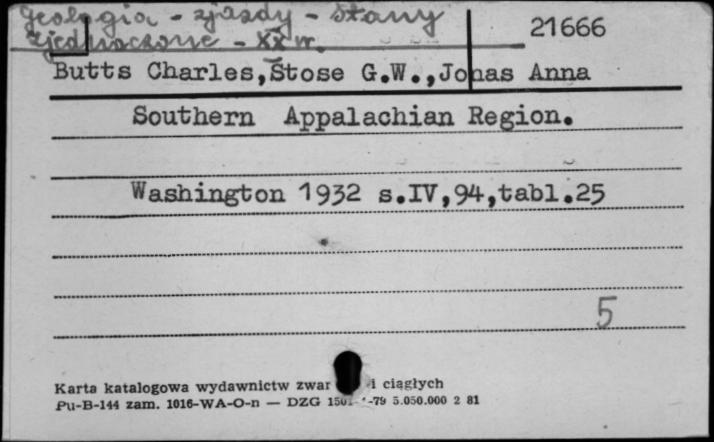 Geologia - zjazdy - Stany
Zjednoczone - XX w.
21666
Butts Charles, Stose G.W., Jonas Anna
Southern Appalachian Region.
Washington 1932 s.IV,94,tabl.25
5
Karta katalogowa wydawnictw zwar i ciągłych
Pu-B-144 zam. 1016-WA-O-n — DZG -79 5.050.000 2 81